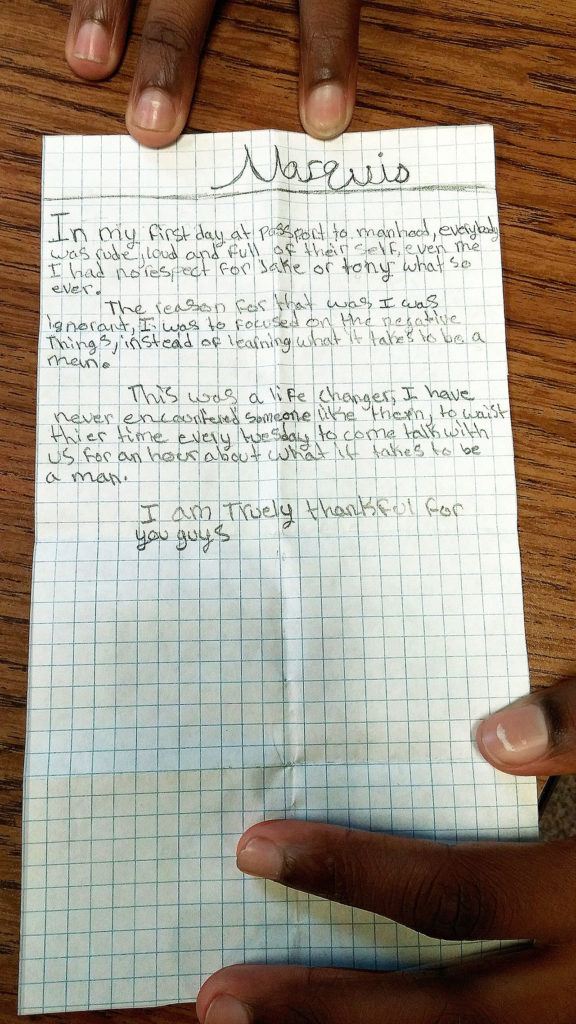 Marquis
In my first day at passport to manhood, everybody
was rude, loud and full of their self, even me
I had no respect for Jake or tony what so
ever.
The reason for that was I was
ignorant, I was to focused on the negative
Things, instead of learning what it takes to be a
man.
This was a life changer, I have
never encountered someone like them, to waist
thier time every tuesday to come talk with
us for an hour about what it takes to be
a man.
I am Truely thankful for
you guys